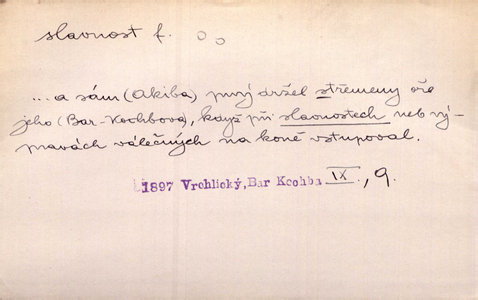 slavnost f.
...a sám (Akiba) prvý držel střemeny oře
jeho (Bar-Kochbova), když při slavnostech neb vý-
pravách válečných na koně vstupoval.
1897 Vrchlický, Bar Kochba IX., 9.